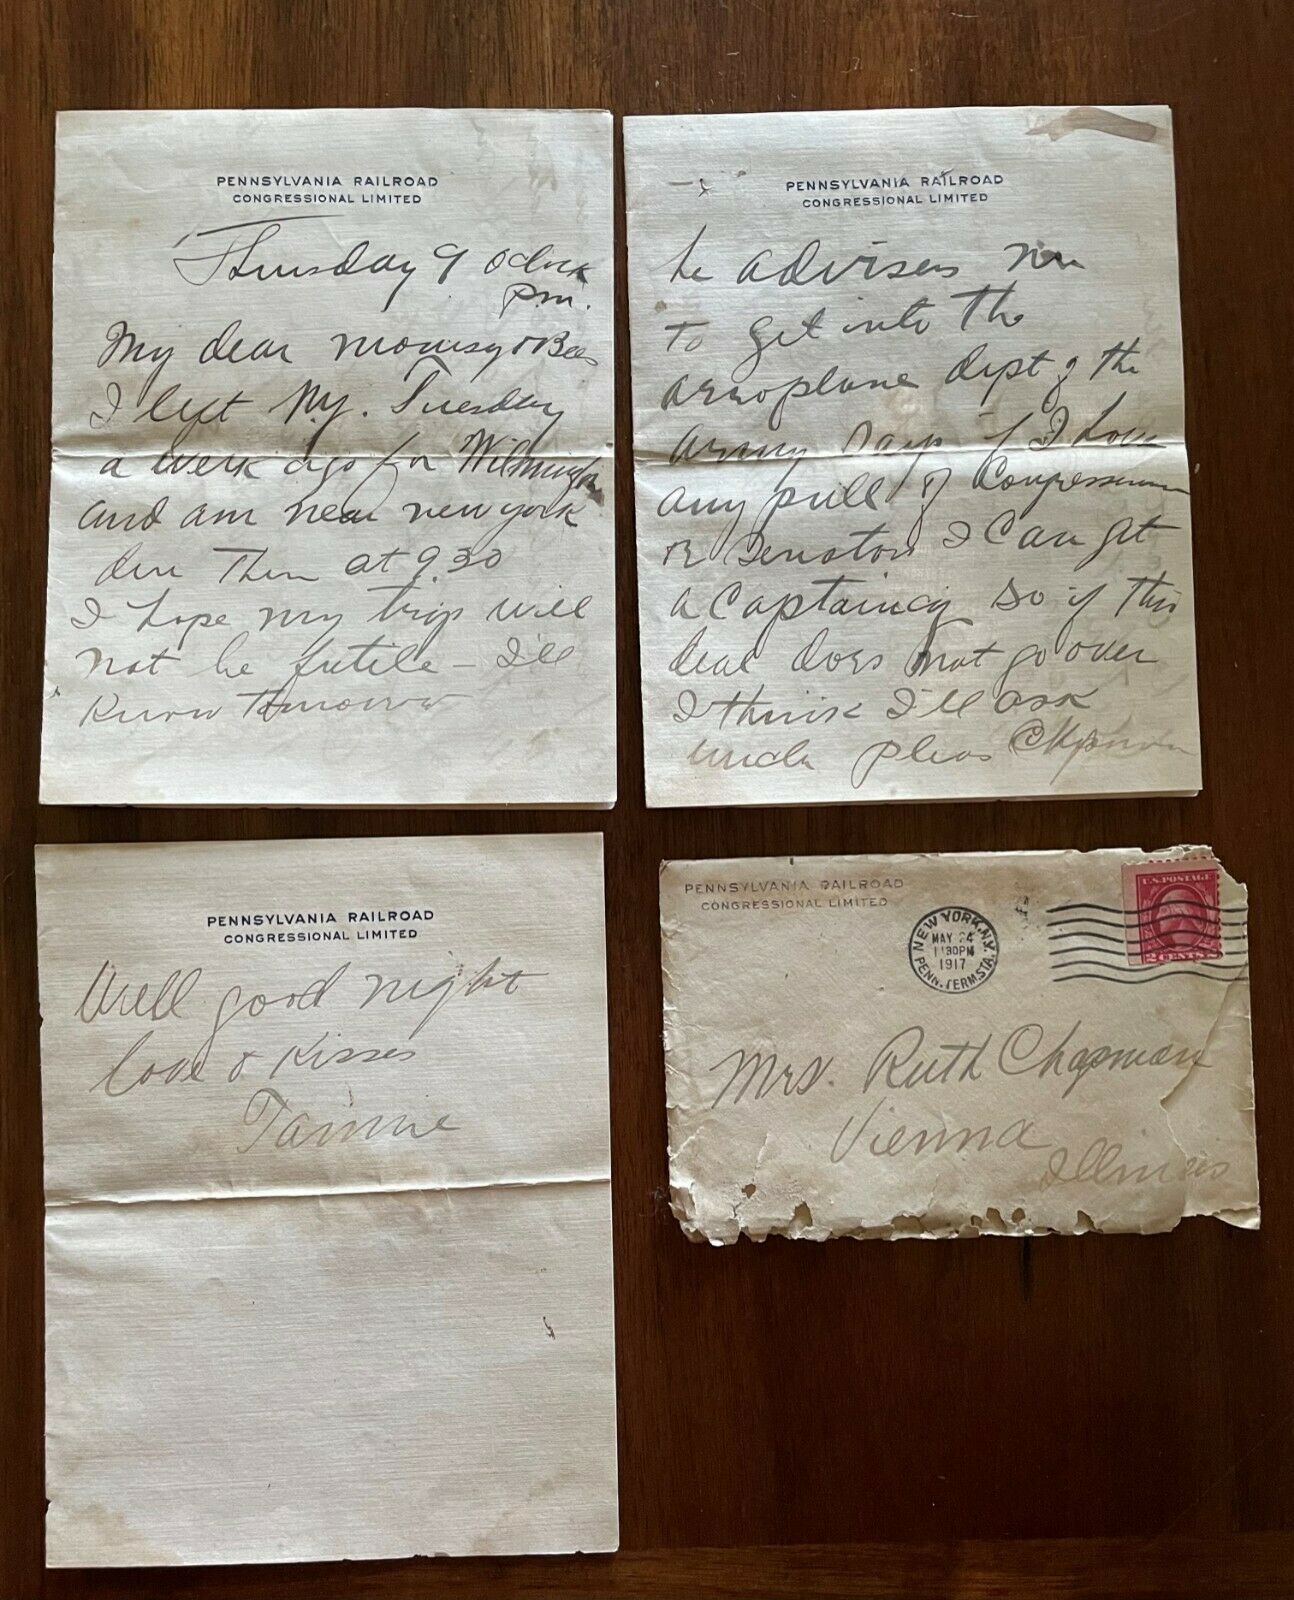 PENNSYLVANIA RAILROAD
CONGRESSIONAL LIMITED
Thursday 9 oclock
P.m.
My dear momsy &
I left N.Y. Tuesday
a week ago for Wilmington
and am near new york
due There at 9.30
I hope my trip will
not be futile — I'll
Know Tomorrow
PENNSYLVANIA RAILROAD
CONGRESSIONAL LIMITED
he advises me
To get into The
aeroplane dept of the
army says if I have
any pull of Congressman
or Senators I can get
a Captaincy so if this
deal does not go over
I think I'll ask
uncle pleas Chapman
PENNSYLVANIA RAILROAD
CONGRESSIONAL LIMITED
Well good night
love & Kisses
PENNSYLVANIA RAILROAD
CONGRESSIONAL LIMITED
NEW YORK, N.Y.
MAY 24
11 30 PM
1917
PENN. TERM. STA.
U.S. POSTAGE
2 CENTS 2
Mrs. Ruth Chapman
Vienna
Illinois